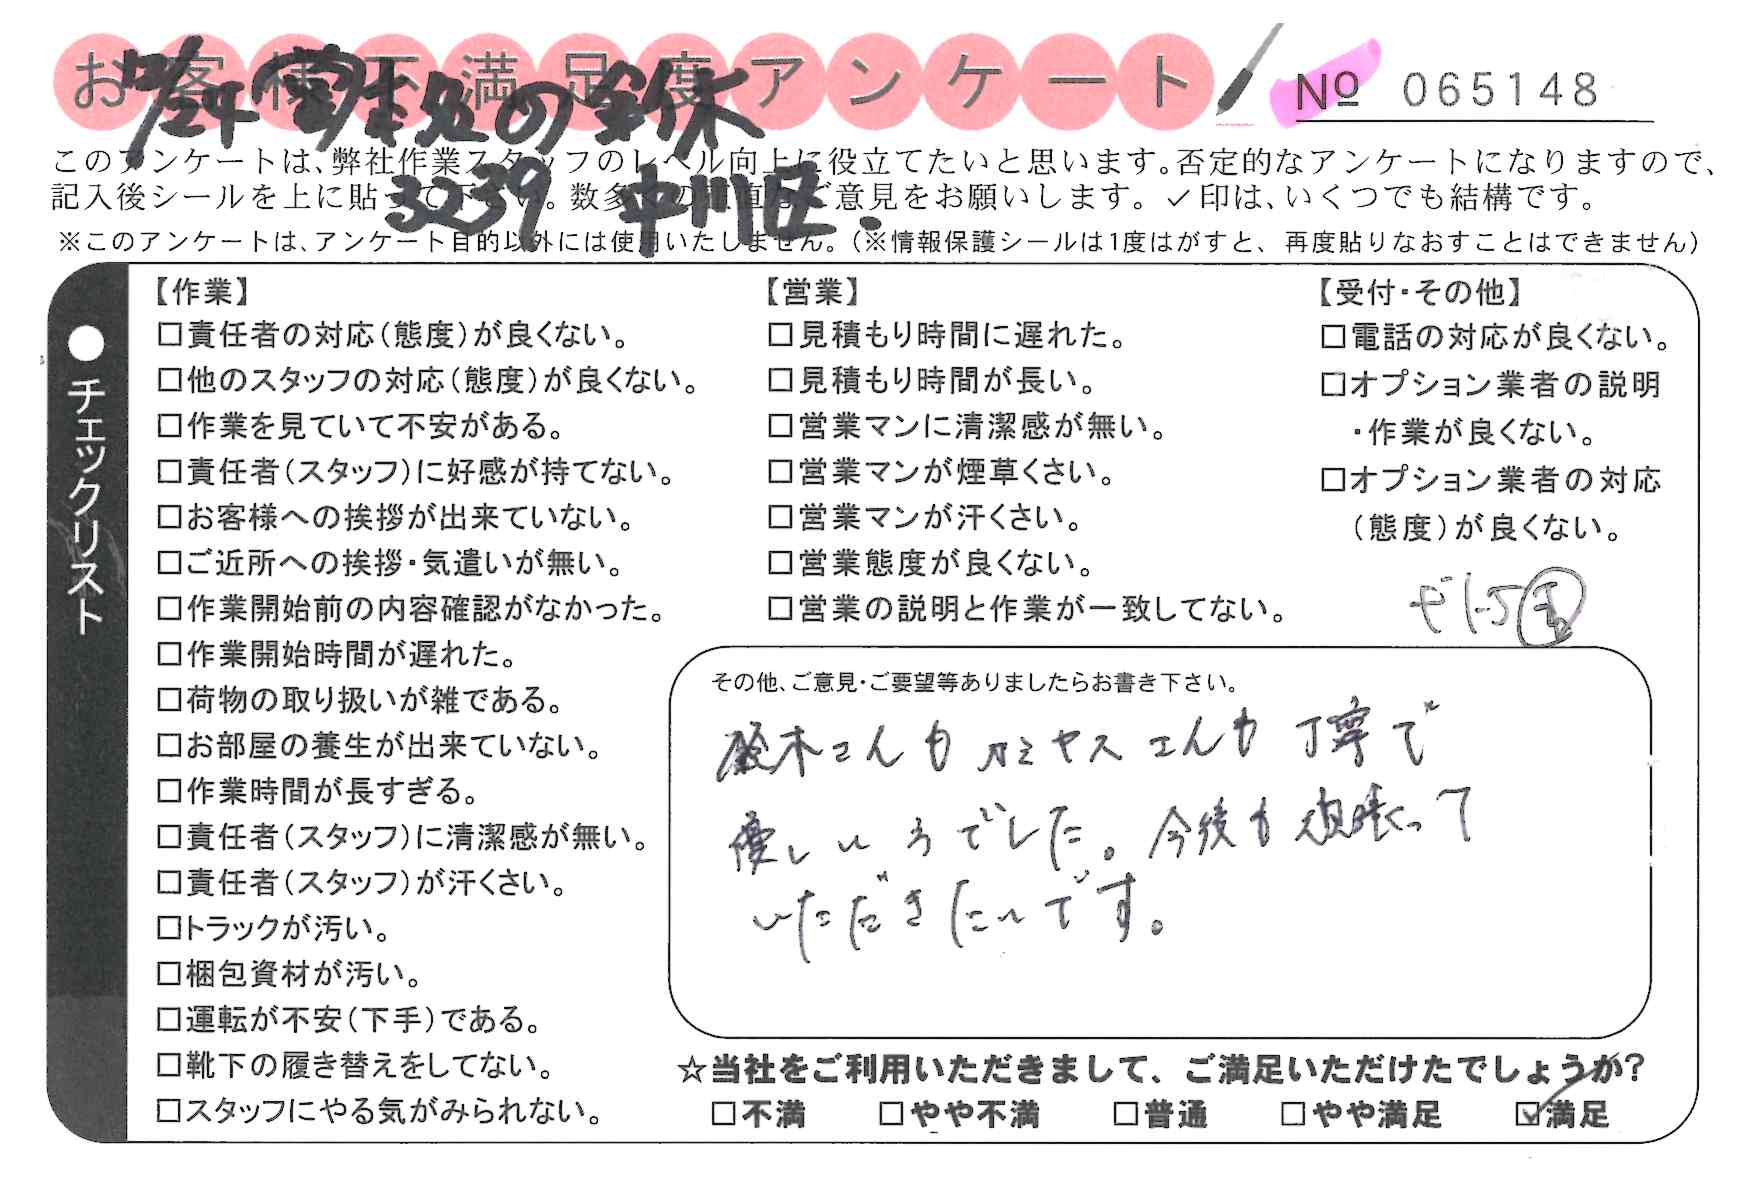 お客様不満足度アンケート
№ 065148
の鈴木
3239 中川区.
このアンケートは、弊社作業スタッフのレベル向上に役立てたいと思います。否定的なアンケートになりますので、
記入後シールを上に貼って下さい。数多くの正直なご意見をお願いします。✓印は、いくつでも結構です。
※このアンケートは、アンケート目的以外には使用いたしません。(※情報保護シールは1度はがすと、再度貼りなおすことはできません)
●チェックリスト
【作業】
□責任者の対応(態度)が良くない。
□他のスタッフの対応(態度)が良くない。
□作業を見ていて不安がある。
□責任者(スタッフ)に好感が持てない。
□お客様への挨拶が出来ていない。
□ご近所への挨拶・気遣いが無い。
□作業開始前の内容確認がなかった。
□作業開始時間が遅れた。
□荷物の取り扱いが雑である。
□お部屋の養生が出来ていない。
□作業時間が長すぎる。
□責任者(スタッフ)に清潔感が無い。
□責任者(スタッフ)が汗くさい。
□トラックが汚い。
□梱包資材が汚い。
□運転が不安(下手)である。
□靴下の履き替えをしてない。
□スタッフにやる気がみられない。
【営業】
□見積もり時間に遅れた。
□見積もり時間が長い。
□営業マンに清潔感が無い。
□営業マンが煙草くさい。
□営業マンが汗くさい。
□営業態度が良くない。
□営業の説明と作業が一致してない。
【受付・その他】
□電話の対応が良くない。
□オプション業者の説明
・作業が良くない。
□オプション業者の対応
(態度)が良くない。
その他、ご意見・ご要望等ありましたらお書き下さい。
鈴木さんもカミヤスさんも丁寧で
優しい方でした。今後も頑張って
いただきたいです。
☆当社をご利用いただきまして、ご満足いただけたでしょうか?
□不満 □やや不満 □普通 □やや満足 ☑満足